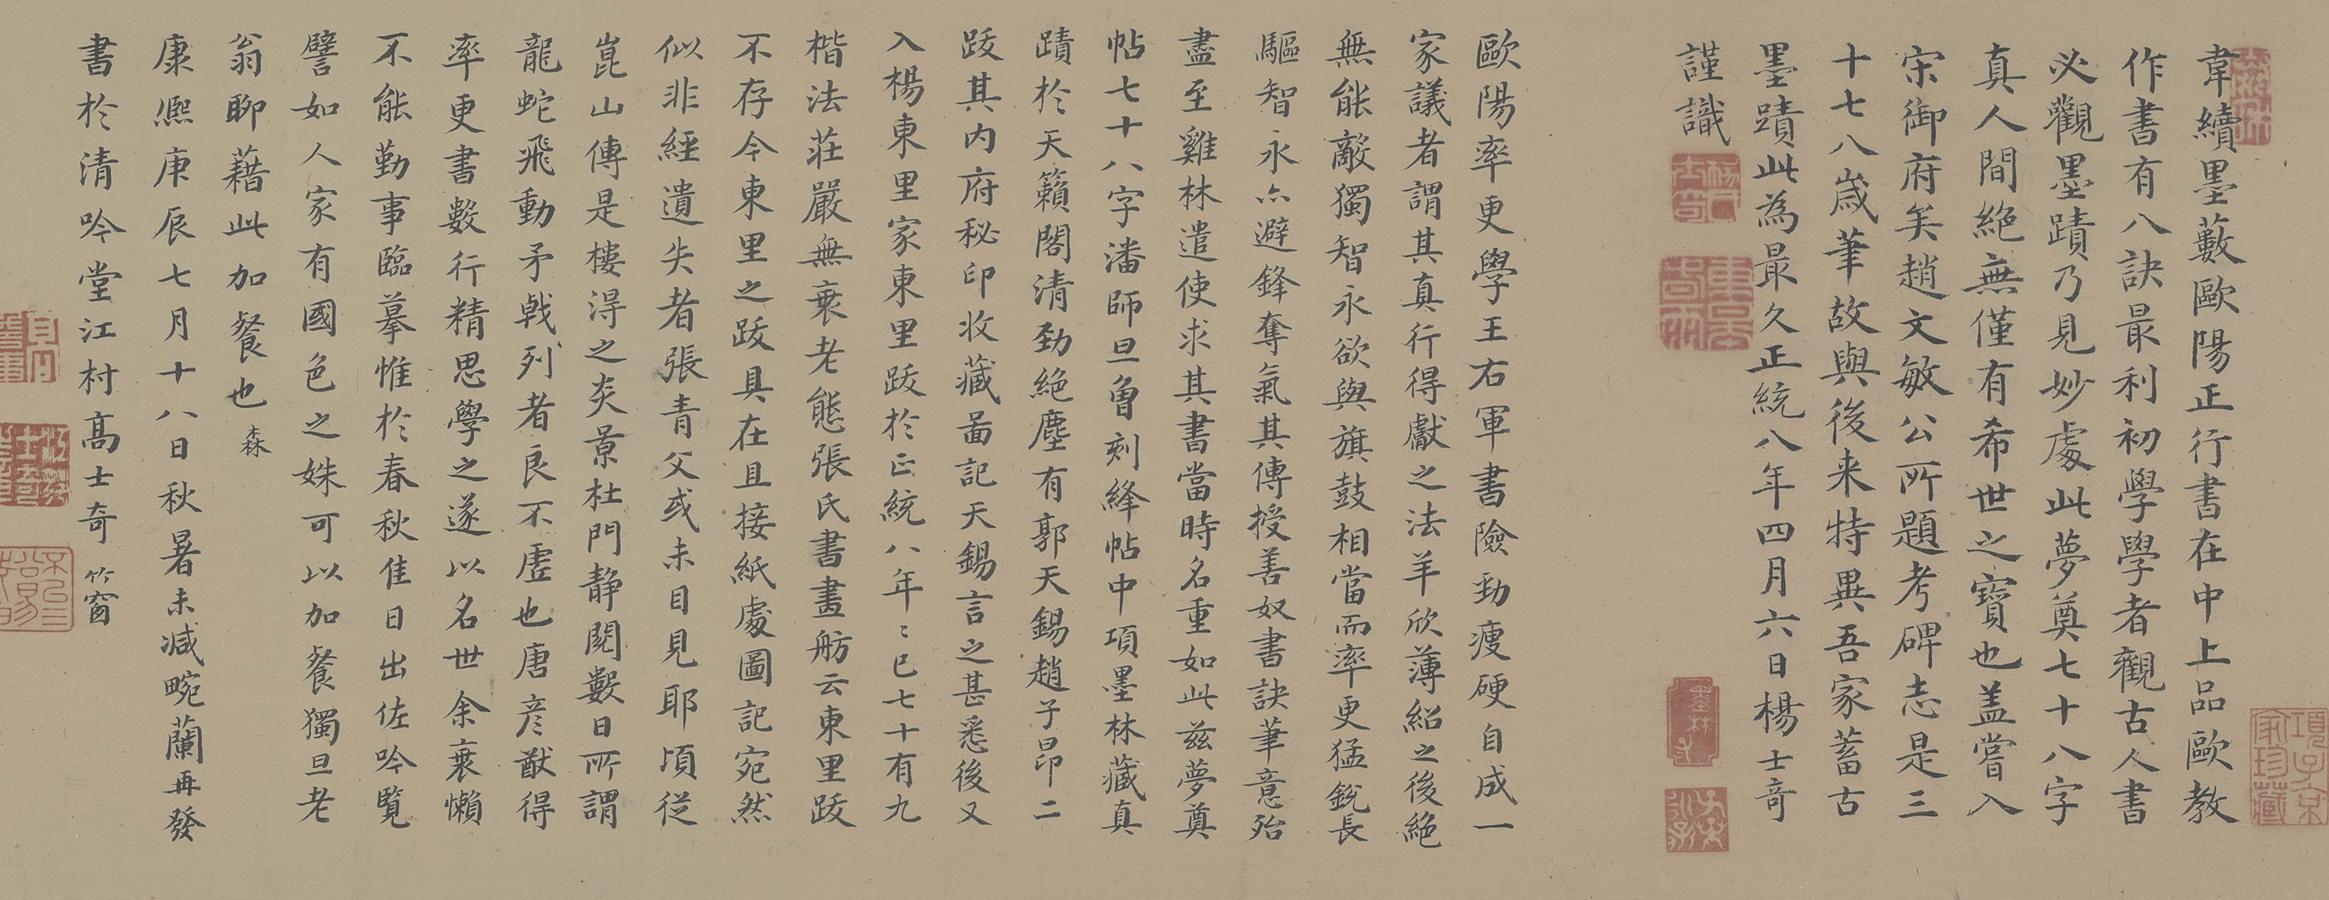 韋續墨藪歐陽正行書在中上品歐教
作書有八訣最利初學學者觀古人書
必觀墨蹟乃見妙處此夢奠七十八字
真人間絕無僅有希世之寶也蓋嘗入
宋御府矣趙文敏公所題考碑志是三
十七八歲筆故與後来特異吾家蓄古
墨蹟此為最久正統八年四月六日楊士奇
謹識
歐陽率更學王右軍書險勁瘦硬自成一
家議者謂其真行得獻之法羊欣薄紹之後絕
無能敵獨智永欲與旗鼓相當而率更猛銳長
驅智永亦避鋒奪氣其傳授善奴書訣筆意殆
盡至雞林遣使求其書當時名重如此茲夢奠
帖七十八字潘師旦曾刻絳帖中項墨林藏真
蹟於天籟閣清勁絕塵有郭天錫趙子昂二
跋其内府秘印收藏啚記天錫言之甚悉後又
入楊東里家東里跋於正統八年〻已七十有九
楷法莊嚴無衰老態張氏書畫舫云東里跋
不存今東里之跋具在且接紙處圖記宛然
似非經遺失者張青父或未目見耶頃從
崑山傳是樓得之炎景杜門静閱數日所謂
龍蛇飛動矛戟列者良不虛也唐彦猷得
率更書數行精思學之遂以名世余衰懶
不能勤事臨摹惟於春秋佳日出佐吟覽
譬如人家有國色之姝可以加餐獨旦老
翁聊藉此加餐也 森
康熙庚辰七月十八日秋暑未减畹蘭再發
書於清吟堂江村高士奇 竹窗
項子京
家珍藏
墨林